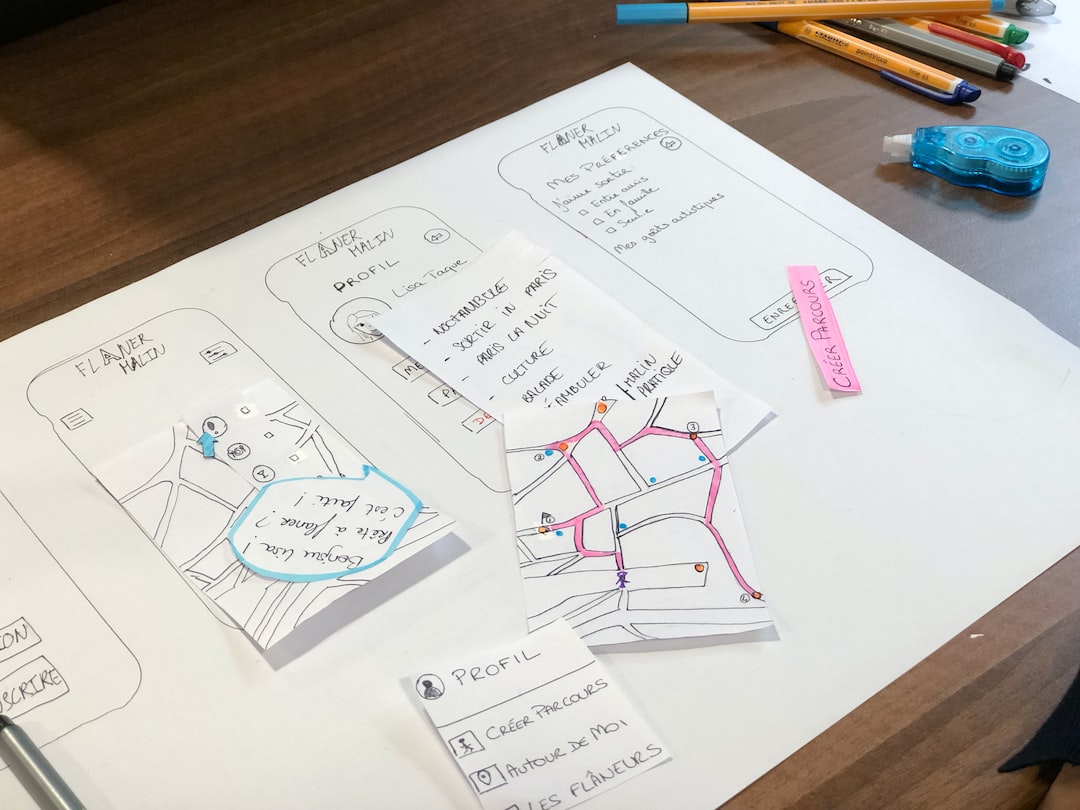 FLANER
MALIN
MES PRÉFÉRENCES
J'aime sortir:
Entre amis
En famille
Seule
Mes goûts artistiques
CRÉER PARCOURS
FLANER
MALIN
PROFIL
Lisa Taque
- NOCTAMBULE
- SORTIR IN PARIS
- PARIS LA NUIT
- CULTURE
- BALADE
MALIN
PRATIQUE
FLANER
MALIN
Bonjour Lisa!
Prête à flâner?
C'est parti!
2
3
4
PROFIL
CRÉER PARCOURS
AUTOUR DE MOI
LES FLÂNEURS
STABILO
point Visco